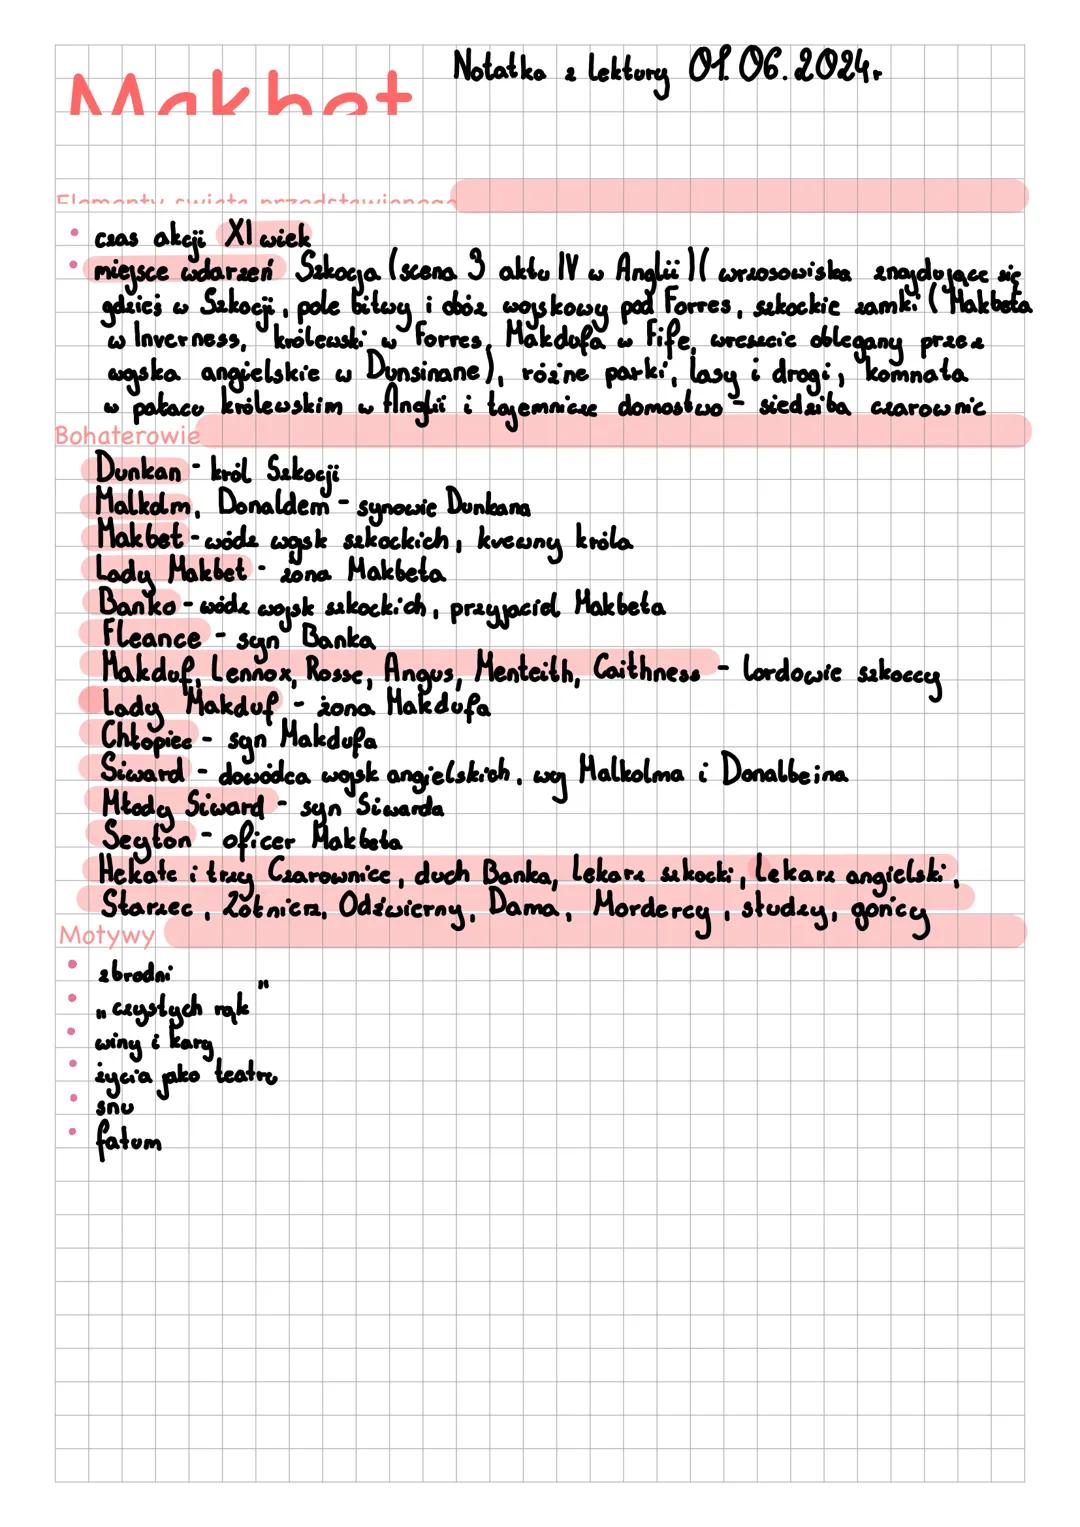 Makbet
Notatka z lektury 01.06.2024r
Elementy świata przedstawionego
• czas akcji XI wiek
• miejsce wdarzeń Szkocja (scena 3 aktu IV w Anglii)( wrzosowiska znajdujące się
gdzieś w Szkocji, pole bitwy i obóz wojskowy pod Forres, szkockie zamki (Makbeta
w Inverness, królewski w Forres, Makdufa w Fife, wreszcie oblegany przez
wojska angielskie w Dunsinane), różne parki, lasy i drogi, komnata
w pałacu królewskim w Anglii i tajemnicze domostwo - siedziba czarownic
Bohaterowie
Dunkan - król Szkocji
Malkolm, Donaldem - synowie Dunkana
Makbet - wódz wojsk szkockich, krewny króla
Lady Makbet - żona Makbeta
Banko - wódz wojsk szkockich, przyjaciel Makbeta
Fleance - syn Banka
Makduf, Lennox, Rosse, Angus, Menteith, Caithness - lordowie szkoccy
Lady Makduf - żona Makdufa
Chłopiec - syn Makdufa
Siward - dowódca wojsk angielskich, wuj Malkolma i Donalbeina
Młody Siward - syn Siwarda
Seyton - oficer Makbeta
Hekate i trzy Czarownice, duch Banka, Lekarz szkocki, Lekarz angielski,
Starzec, Żołnierz, Odźwierny, Dama, Mordercy, słudzy, gońcy
Motywy
• zbrodni
• „czystych rąk"
• winy i kary
• życia jako teatru
• snu
• fatum